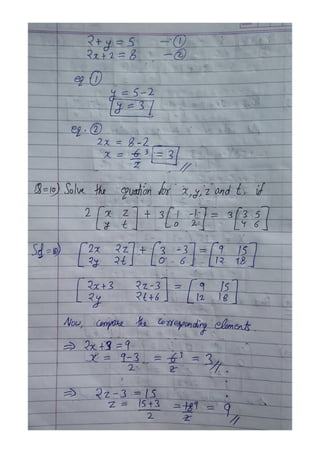 2+y=5 —①
2x+2=8 —②
eq ①
y = 5-2
y = 3
eq. ②
2x = 8-2
x = 6/2 3 = 3 //
Q=10) Solve the quation for x, y, z and t, if
2 [x z] + 3 [1 -1] = 3 [3 5]
[y t] [0 2] [4 6]
Sol=10) [2x 2z] + [3 -3] = [9 15]
[2y 2t] [0 6] [12 18]
[2x+3 2z-3] = [9 15]
[2y 2t+6] [12 18]
Now, compare the corresponding elements.
⇒ 2x+3=9
x = 9-3/2 = 6/2 3 = 3//.
⇒ 2z-3=15
z = 15+3/2 = 18/2 9 = 9 //